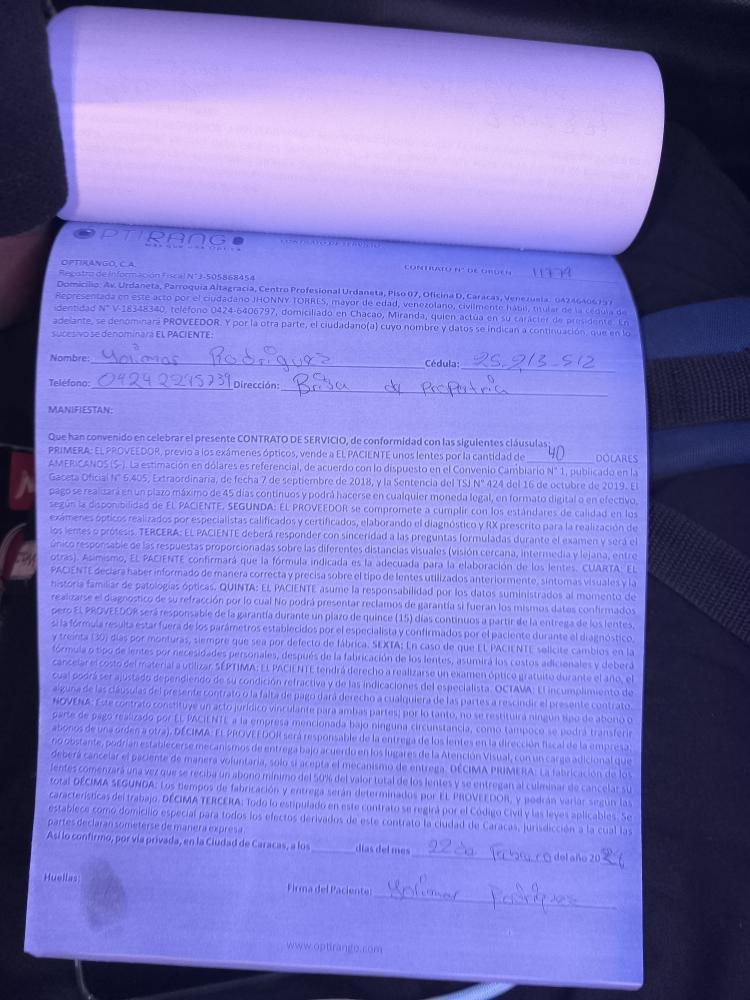 OPTIRANGO
MÁS QUE UNA ÓPTICA
CONTRATO DE SERVICIO
OPTIRANGO, C.A.
CONTRATO N° DE ORDEN 11779
Registro de Información Fiscal N°J-505868454
Domicilio: Av. Urdaneta, Parroquia Altagracia, Centro Profesional Urdaneta, Piso 07, Oficina D, Caracas, Venezuela. 04246406797
Representada en este acto por el ciudadano JHONNY TORRES, mayor de edad, venezolano, civilmente hábil, titular de la cédula de
identidad N° V-18348340, teléfono 0424-6406797, domiciliado en Chacao, Miranda, quien actua en su carácter de presidente. En
adelante, se denominará PROVEEDOR. Y por la otra parte, el ciudadano(a) cuyo nombre y datos se indican a continuación, que en lo
sucesivo se denominara EL PACIENTE:
Nombre: Yolimar Rodriguez Cédula: 25.213.512
Teléfono: 04242295739 Dirección: de
MANIFIESTAN:
Que han convenido en celebrar el presente CONTRATO DE SERVICIO, de conformidad con las siguientes cláusulas:
PRIMERA: EL PROVEEDOR, previo a los exámenes ópticos, vende a EL PACIENTE unos lentes por la cantidad de 40 DÓLARES
AMERICANOS ($-). La estimación en dólares es referencial, de acuerdo con lo dispuesto en el Convenio Cambiario N° 1, publicado en la
Gaceta Oficial N° 6.405, Extraordinaria, de fecha 7 de septiembre de 2018, y la Sentencia del TSJ N° 424 del 16 de octubre de 2019. El
pago se realizará en un plazo máximo de 45 días continuos y podrá hacerse en cualquier moneda legal, en formato digital o en efectivo,
según la disponibilidad de EL PACIENTE. SEGUNDA: EL PROVEEDOR se compromete a cumplir con los estándares de calidad en los
exámenes ópticos realizados por especialistas calificados y certificados, elaborando el diagnóstico y RX prescrito para la realización de
los lentes o prótesis. TERCERA: EL PACIENTE deberá responder con sinceridad a las preguntas formuladas durante el examen y será el
único responsable de las respuestas proporcionadas sobre las diferentes distancias visuales (visión cercana, intermedia y lejana, entre
otras). Asimismo, EL PACIENTE confirmará que la fórmula indicada es la adecuada para la elaboración de los lentes. CUARTA: EL
PACIENTE declara haber informado de manera correcta y precisa sobre el tipo de lentes utilizados anteriormente, síntomas visuales y la
historia familiar de patologías ópticas. QUINTA: EL PACIENTE asume la responsabilidad por los datos suministrados al momento de
realizarse el diagnostico de su refracción por lo cual No podrá presentar reclamos de garantía si fueran los mismos datos confirmados
pero EL PROVEEDOR será responsable de la garantía durante un plazo de quince (15) días continuos a partir de la entrega de los lentes,
si la fórmula resulta estar fuera de los parámetros establecidos por el especialista y confirmados por el paciente durante el diagnóstico,
y treinta (30) días por monturas, siempre que sea por defecto de fábrica. SEXTA: En caso de que EL PACIENTE solicite cambios en la
fórmula o tipo de lentes por necesidades personales, después de la fabricación de los lentes, asumirá los costos adicionales y deberá
cancelar el costo del material a utilizar. SÉPTIMA: EL PACIENTE tendrá derecho a realizarse un examen óptico gratuito durante el año, el
cual podrá ser ajustado dependiendo de su condición refractiva y de las indicaciones del especialista. OCTAVA: El incumplimiento de
alguna de las cláusulas del presente contrato o la falta de pago dará derecho a cualquiera de las partes a rescindir el presente contrato.
NOVENA: Este contrato constituye un acto jurídico vinculante para ambas partes; por lo tanto, no se restituirá ningún tipo de abono o
parte de pago realizado por EL PACIENTE a la empresa mencionada bajo ninguna circunstancia, como tampoco se podrá transferir
abonos de una orden a otra). DÉCIMA: EL PROVEEDOR será responsable de la entrega de los lentes en la dirección fiscal de la empresa,
no obstante, podrían establecerse mecanismos de entrega bajo acuerdo en los lugares de la Atención Visual, con un cargo adicional que
deberá cancelar el paciente de manera voluntaria, solo si acepta el mecanismo de entrega. DÉCIMA PRIMERA: La fabricación de los
lentes comenzará una vez que se reciba un abono mínimo del 50% del valor total de los lentes y se entregan al culminar de cancelar su
total DÉCIMA SEGUNDA: Los tiempos de fabricación y entrega serán determinados por EL PROVEEDOR, y podrán variar según las
características del trabajo. DÉCIMA TERCERA: Todo lo estipulado en este contrato se regirá por el Código Civil y las leyes aplicables. Se
establece como domicilio especial para todos los efectos derivados de este contrato la ciudad de Caracas, jurisdicción a la cual las
partes declaran someterse de manera expresa.
Así lo confirmo, por vía privada, en la Ciudad de Caracas, a los días del mes 22 de Febrero del año 20
Huellas:
Firma del Paciente: Yolimar Rodriguez
www.optirango.com